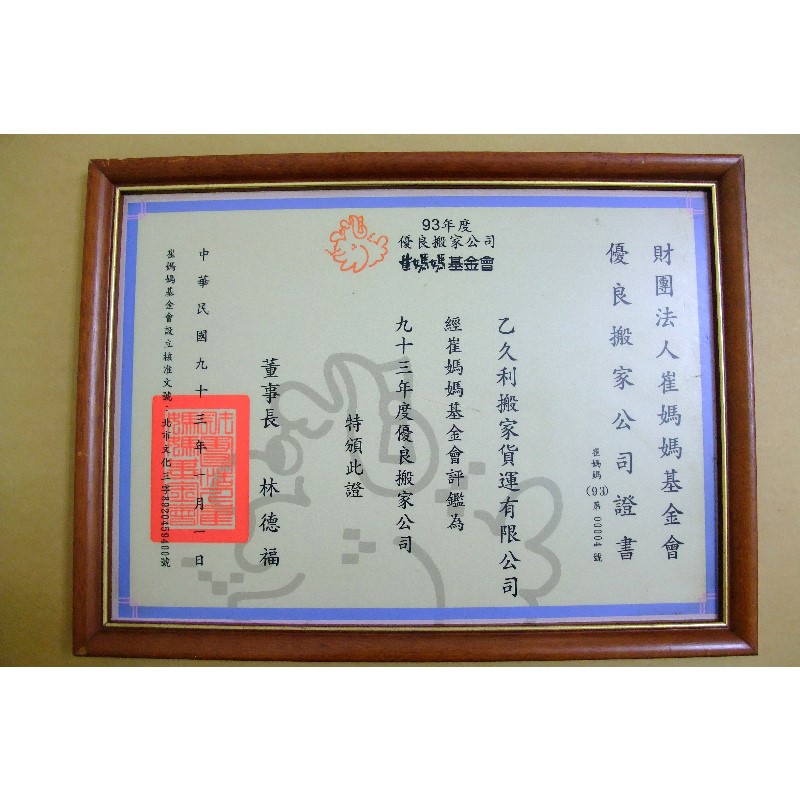 93年度
優良搬家公司
崔媽媽基金會
財團法人崔媽媽基金會
優良搬家公司證書
崔媽媽(93)第00004號
乙久利搬家貨運有限公司
經崔媽媽基金會評鑑為
九十三年度優良搬家公司
特頒此證
董事長 林德福
中華民國九十三年一月一日
崔媽媽基金會設立核准文號：北市文化三字